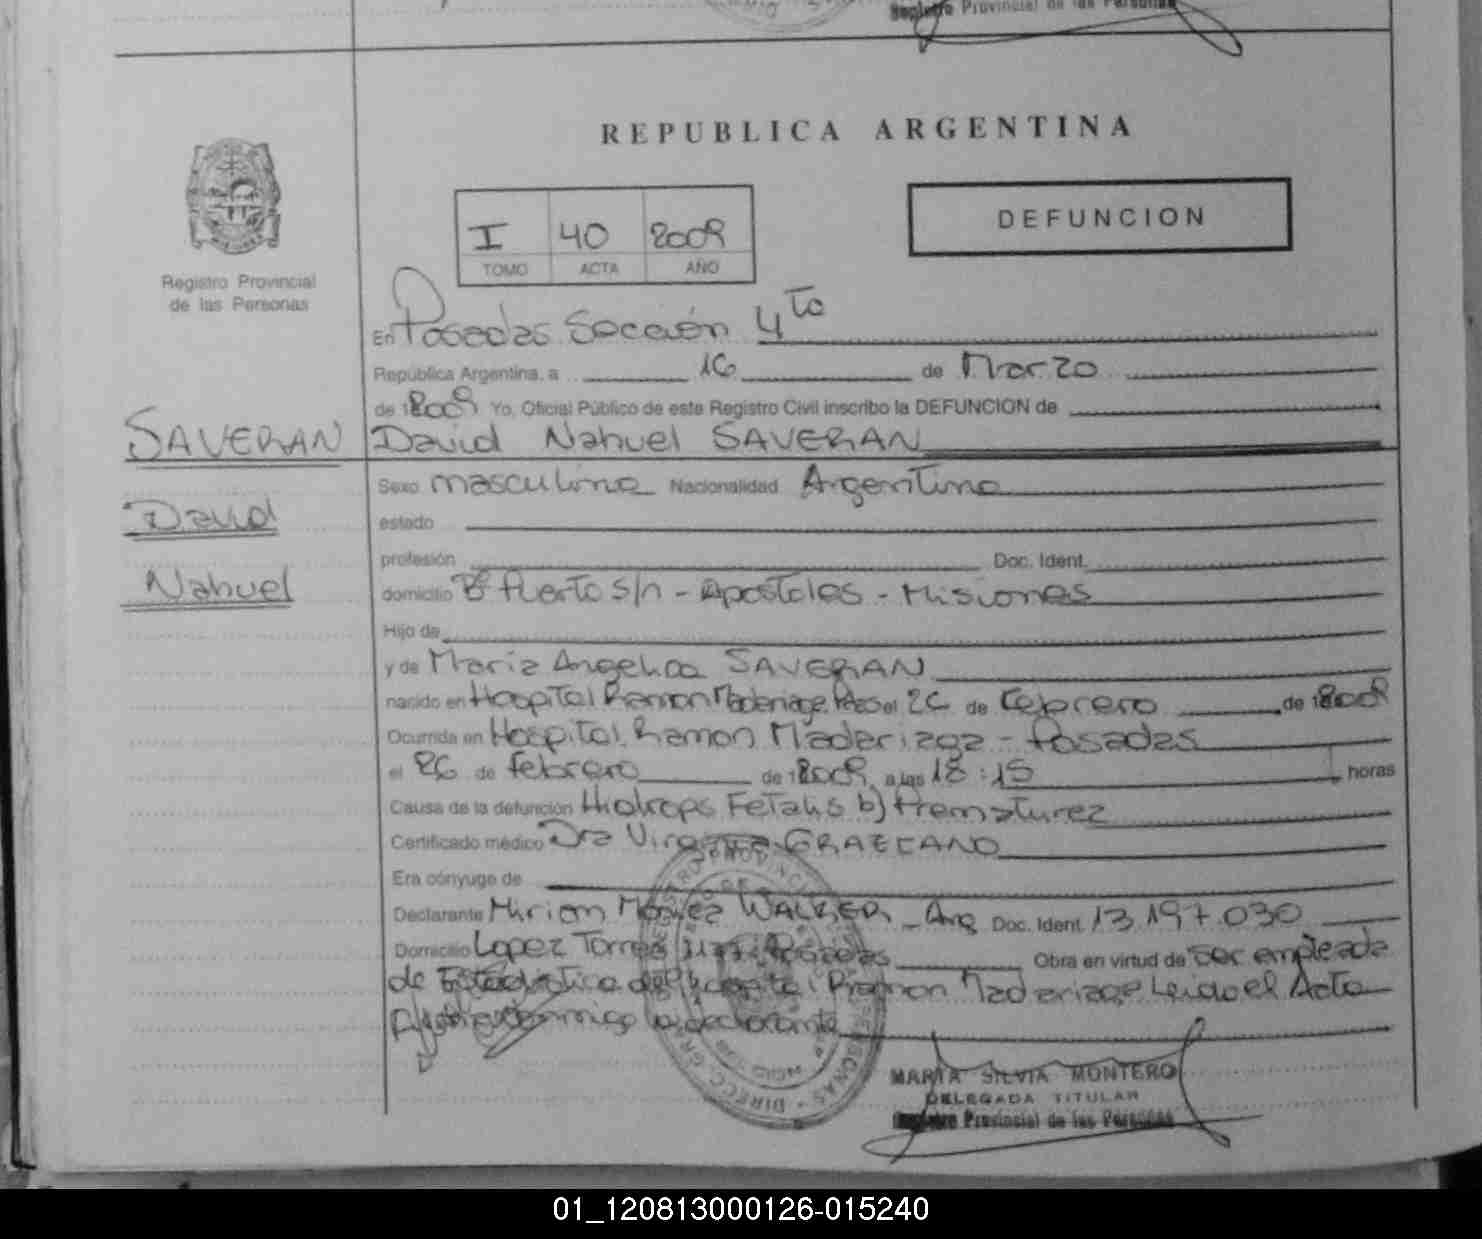 Registro Provincial de las Personas
REPUBLICA ARGENTINA
DEFUNCION
I 40 2009
TOMO ACTA AÑO
Registro Provincial
de las Personas
En Posadas Sección 4ta
República Argentina, a 16 de Marzo
de 2009 Yo, Oficial Público de este Registro Civil inscribo la DEFUNCION de
SAVERAN David Nahuel SAVERAN
Sexo masculino Nacionalidad Argentina
David
estado
profesión Doc. Ident.
Nahuel
domicilio Bº Puerto s/n - Apostoles - Misiones
Hijo de
y de Maria Angelica SAVERAN
nacido en Hospital Ramon Madariaga el 26 de Febrero de 2009
Ocurrida en Hospital Ramon Madariaga - Posadas
el 26 de febrero de 2009 a las 18:15 horas
Causa de la defunción Hidrops Fetalis b) Prematurez
Certificado médico Dra GRAECANO
Era cónyuge de
Declarante Mirian WALKER - Arg Doc. Ident. 13.197.030
Domicilio Lopez Torres Posadas Obra en virtud de ser empleada
de Estadistica del Hospital Ramon Madariaga Leido el Acta
conmigo la declarante
MARIA SILVIA MONTERO
DELEGADA TITULAR
Registro Provincial de las Personas
01_120813000126-015240